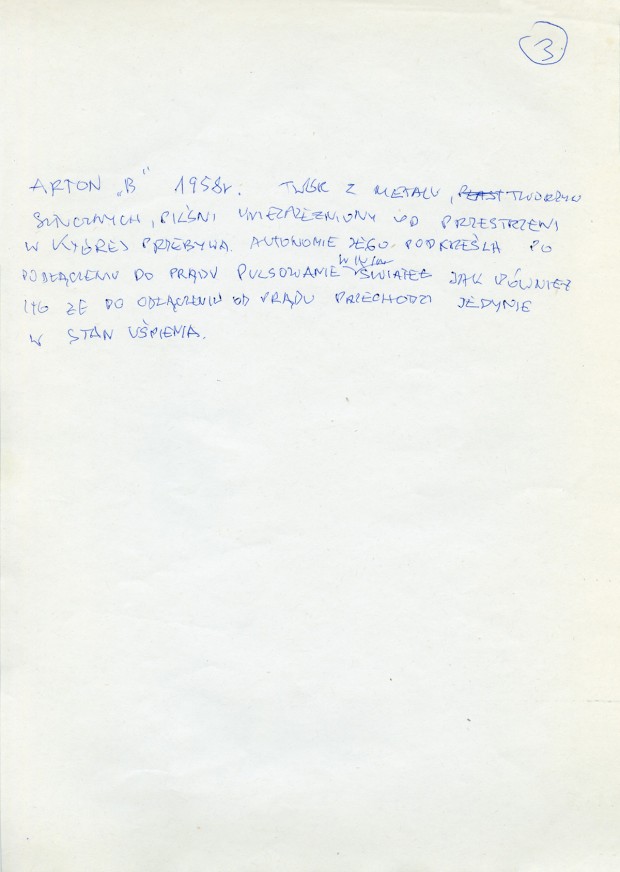 3
ARTON „B" 1958r. TWÓR Z METALU, PLAST TWORZYW
SZTUCZNYCH, PILŚNI UNIEZALEŻNIONY OD PRZESTRZENI
W KTÓREJ PRZEBYWA. AUTONOMIE JEGO PODKREŚLA PO
PODŁĄCZENIU DO PRĄDU PULSOWANIE ŚWIATEŁ JAK RÓWNIEŻ
TO ŻE PO ODŁĄCZENIU OD PRĄDU PRZECHODZI JEDYNIE
W STAN UŚPIENIA.